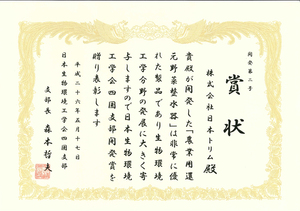 開発第二号
賞状
株式会社日本トリム殿
貴殿が開発した「農業用還
元野菜整水器」は非常に優
れた製品であり生物環境
工学分野の発展に大きく寄
与しますので日本生物環境
工学会四国支部開発賞を
贈り表彰します
平成二十六年五月十七日
日本生物環境工学会四国支部
支部長 森本哲夫